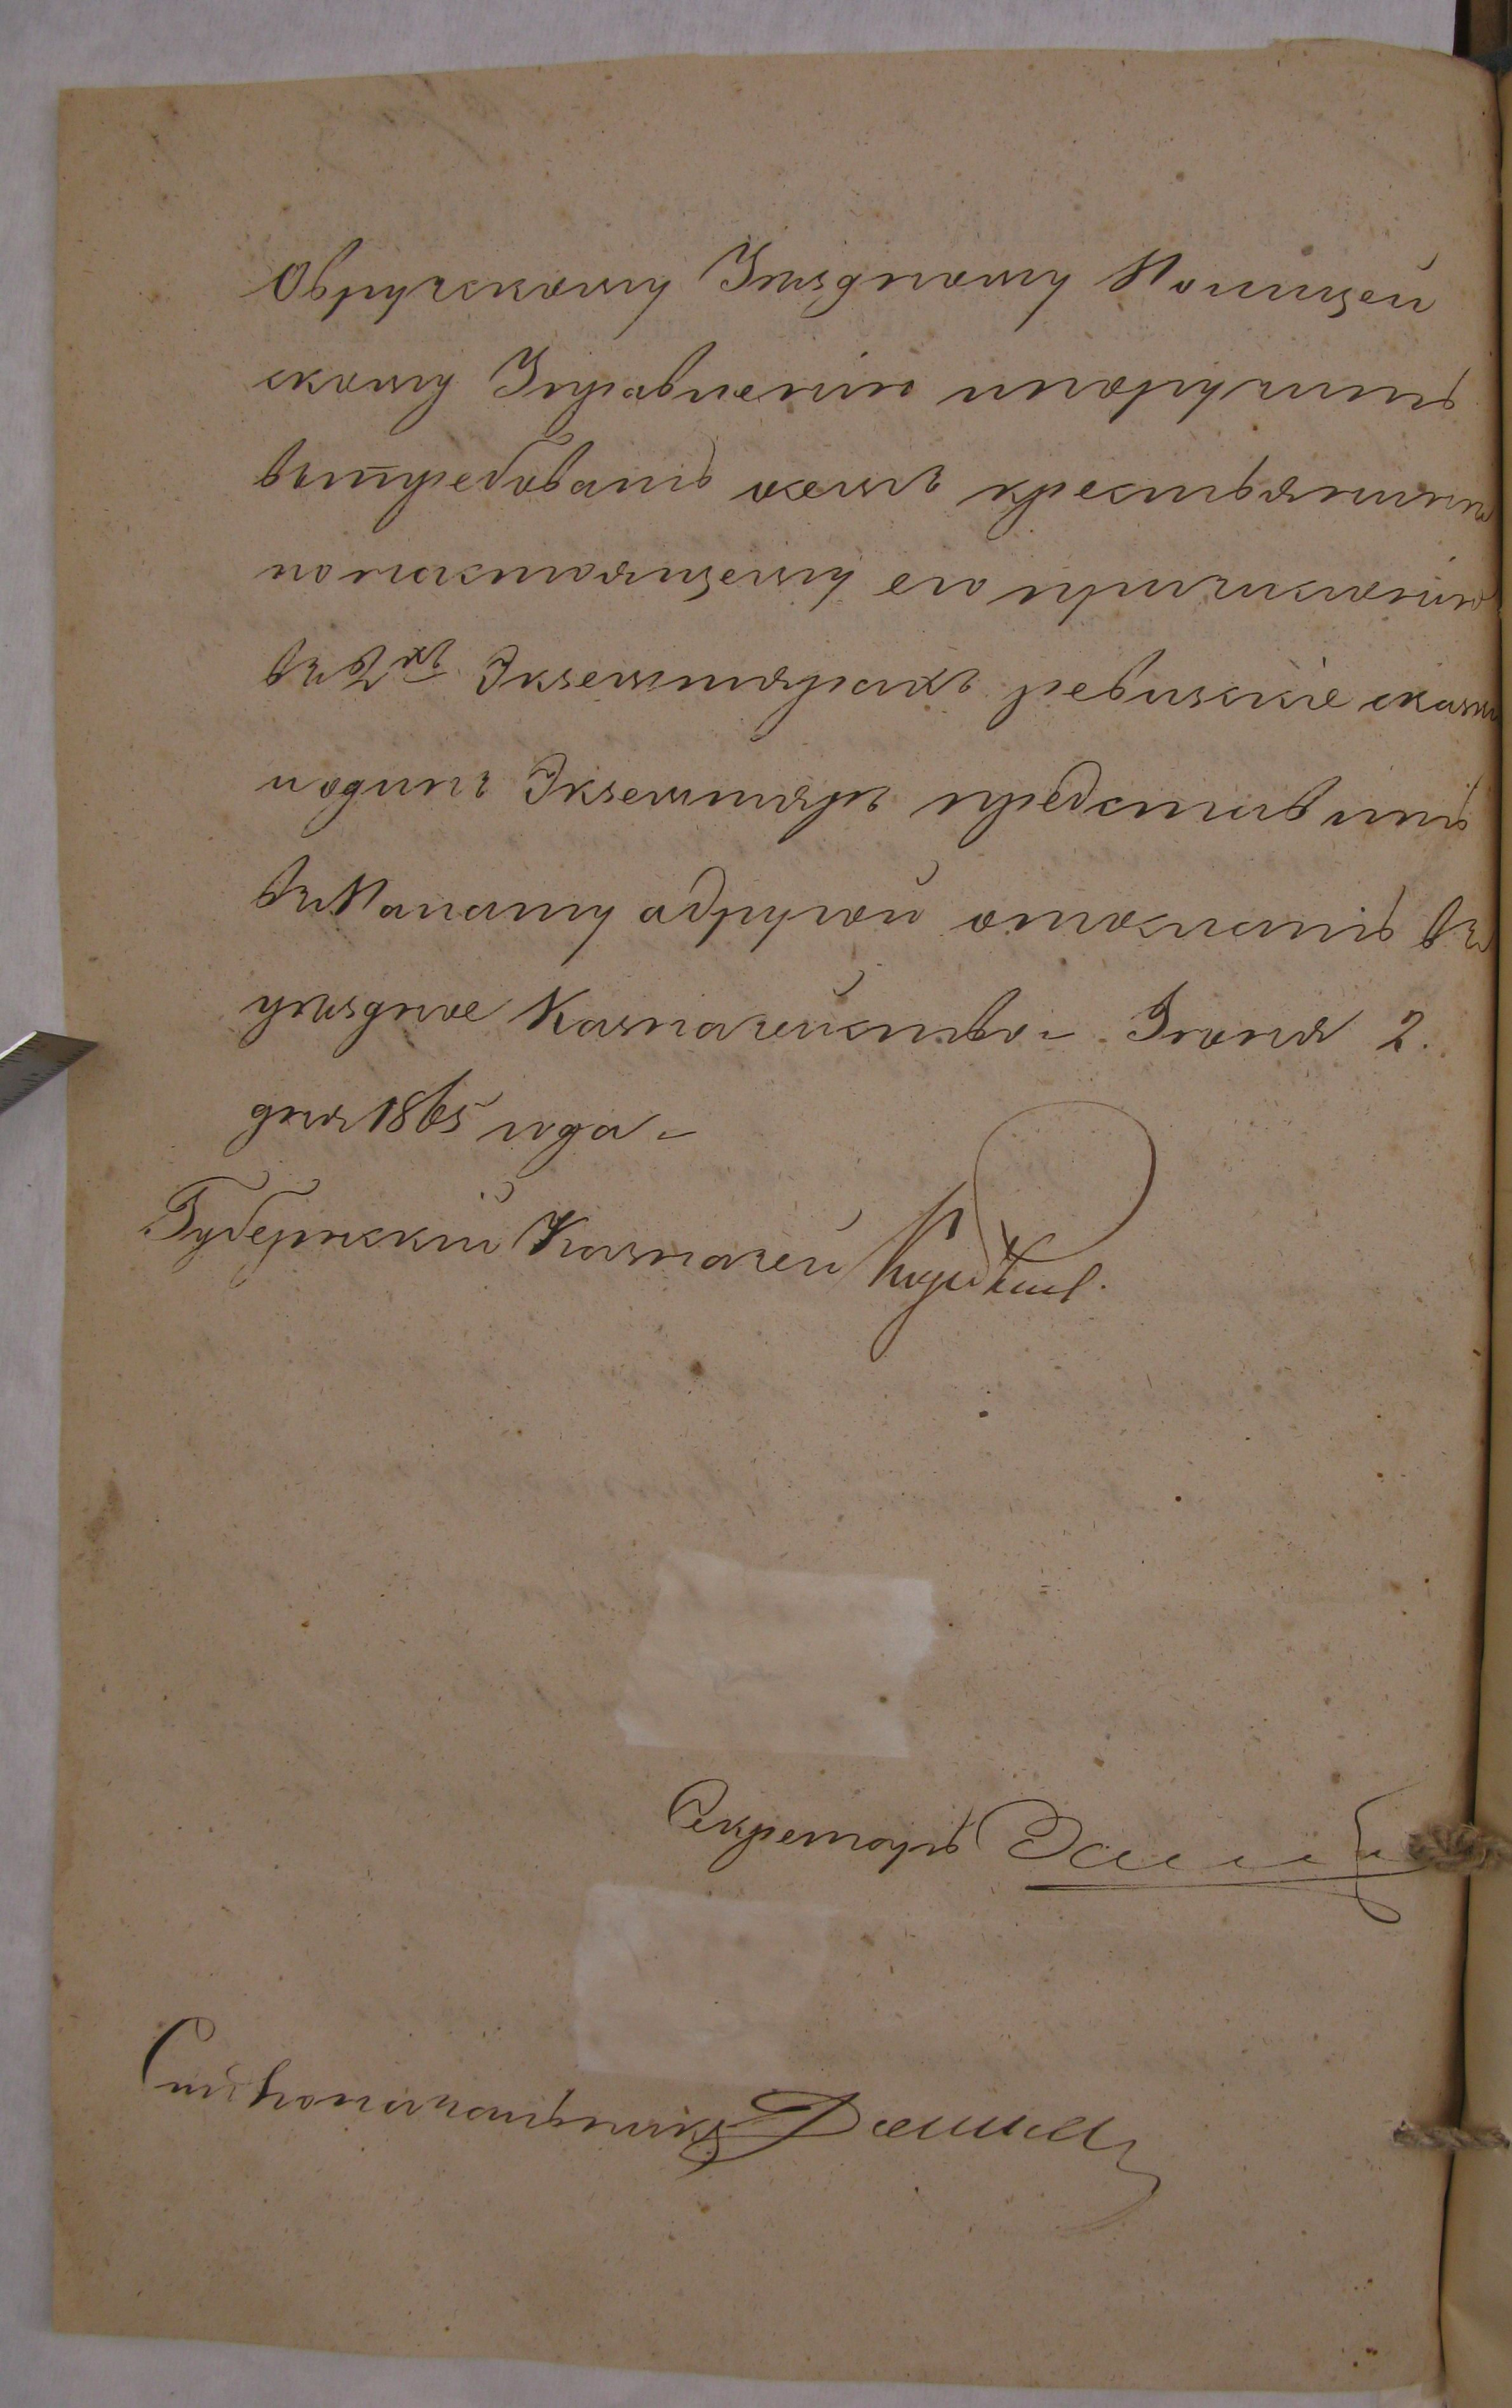 Овручскому Уѣздному Полицей
скому Управленію и поручить
вытребовать о семъ крестьянинѣ
по настоящему его причисленію
въ 2хъ Экземплярахъ ревизскіе сказки
и одинъ Экземпляръ представить
въ Палату а другой отослать въ
уѣздное Казначейство. Іюня 2.
дня 1865 года.
Губернскій Казначей
Секретарь
Столоначальникъ